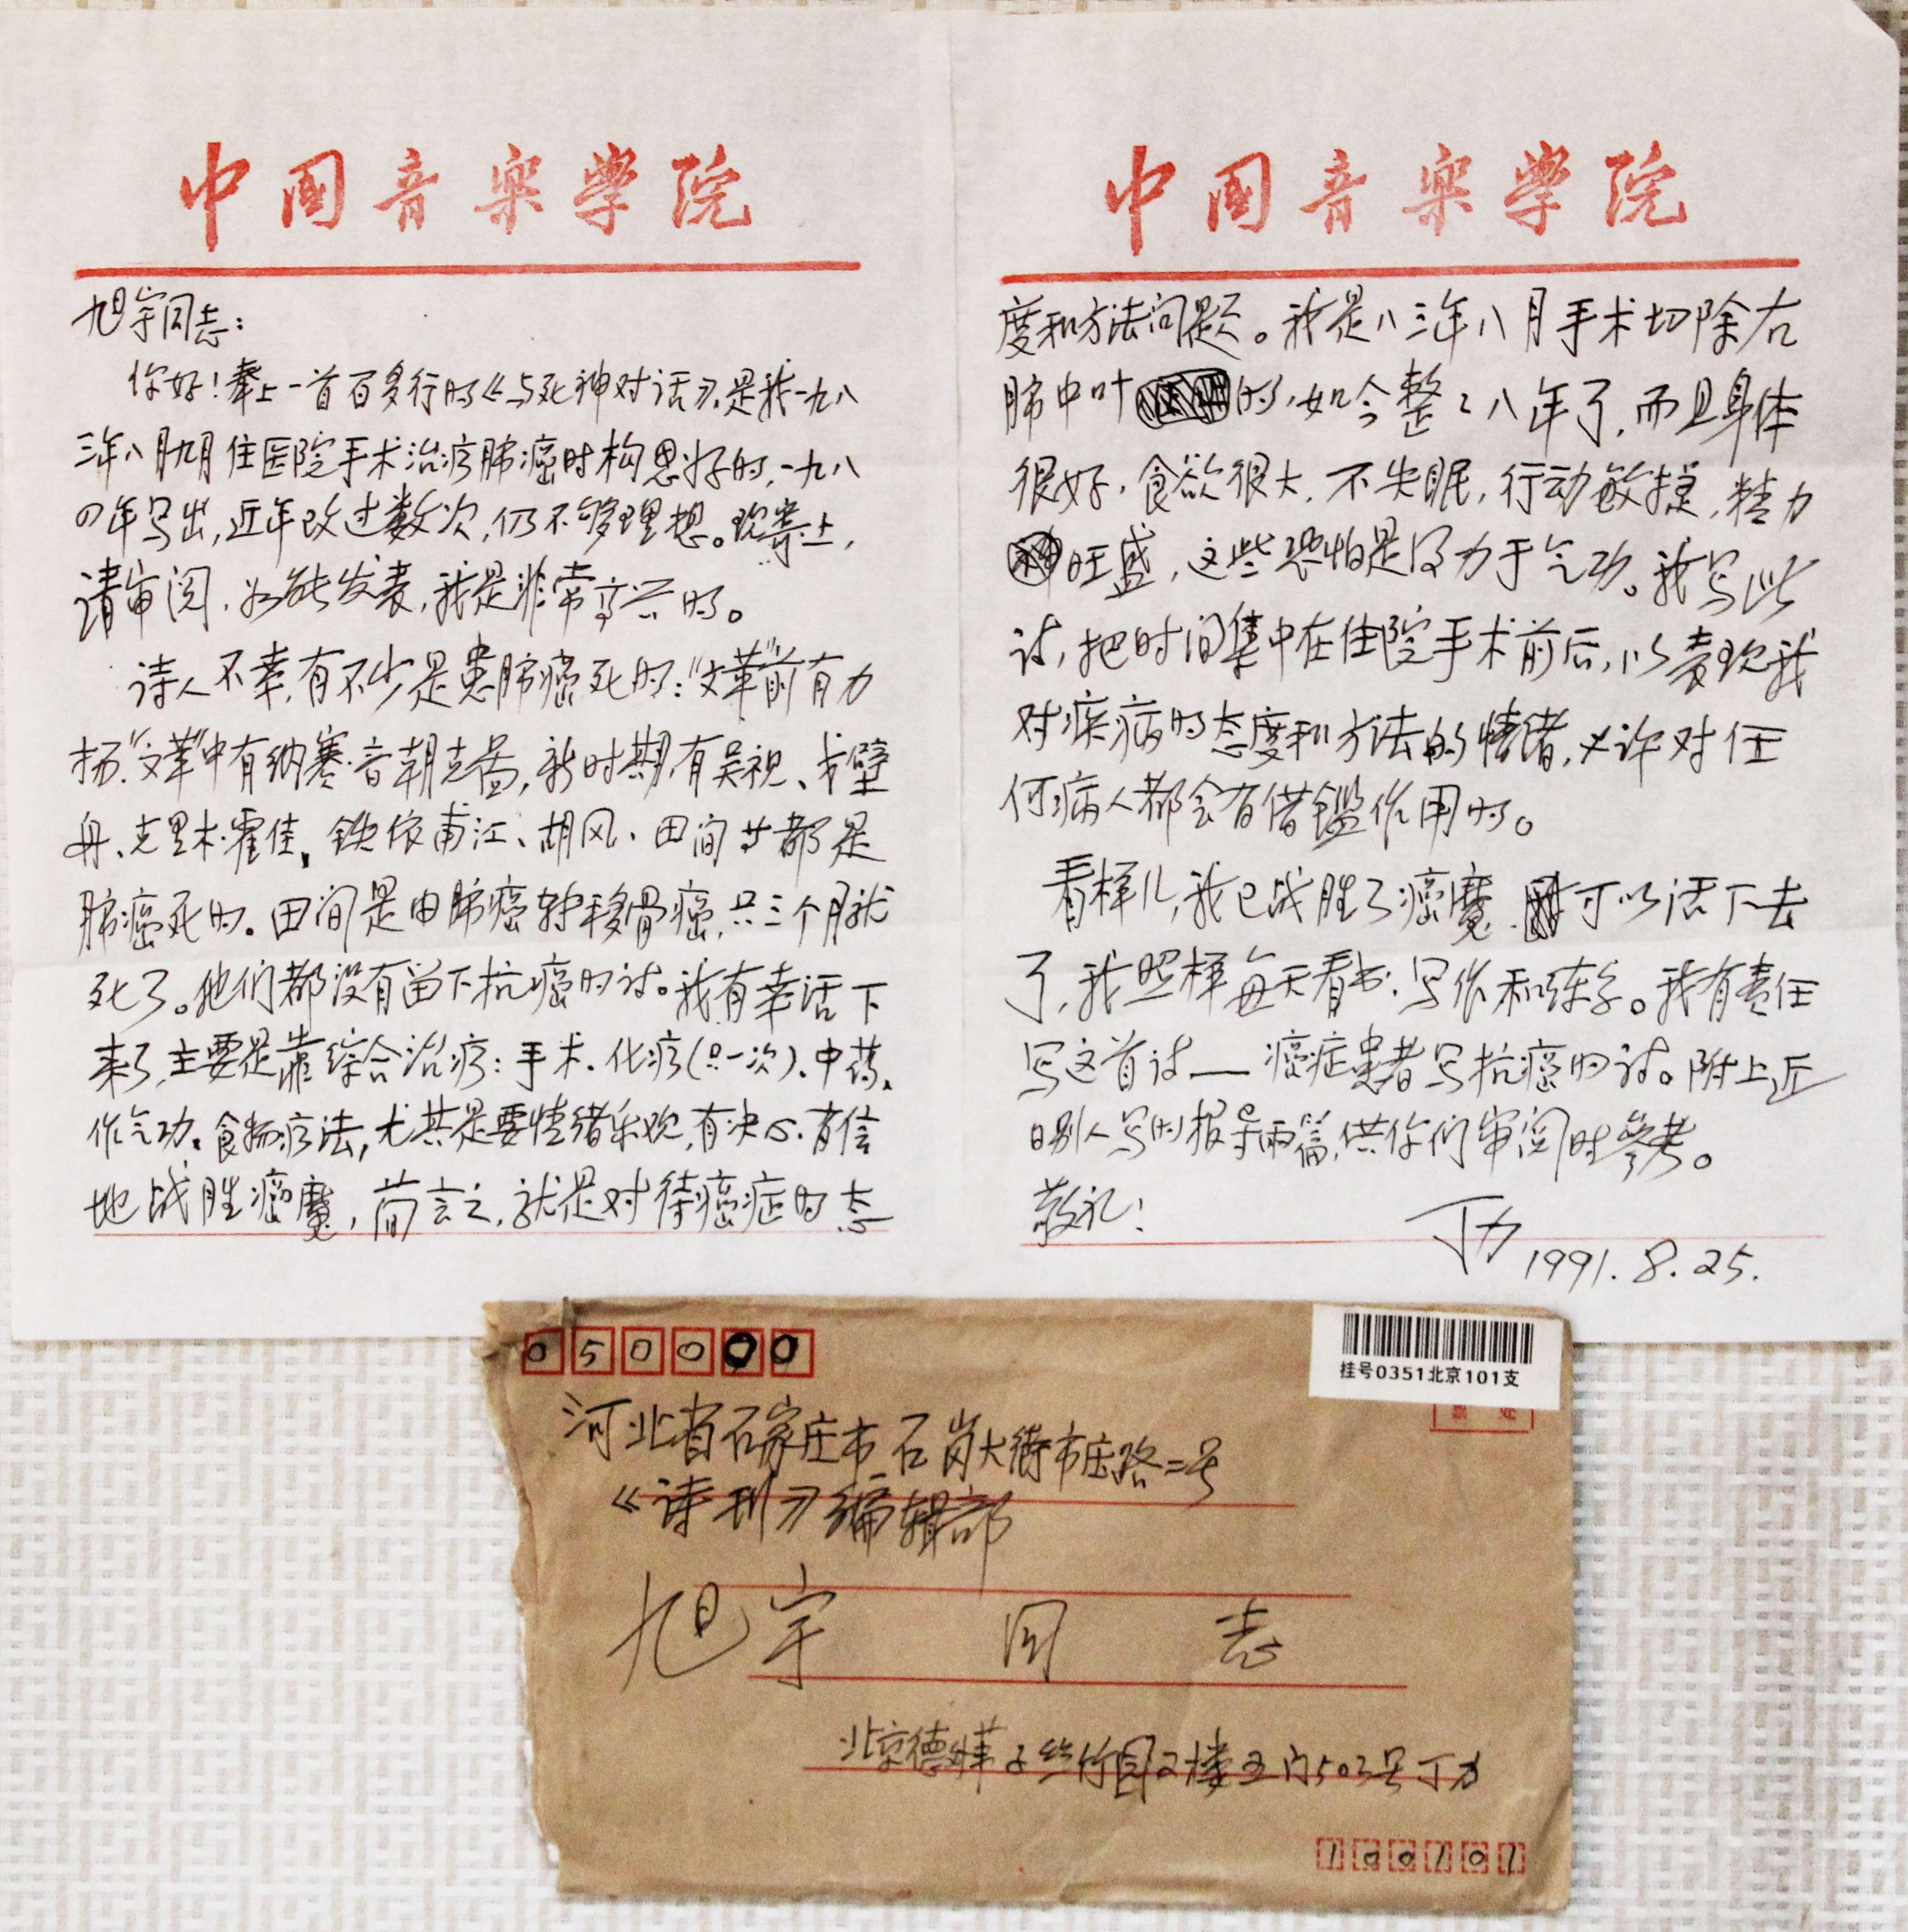 中国音乐学院
旭宇同志：
你好！奉上一首百多行的《与死神对话》，是我一九八
三年八月九月住医院手术治疗肺癌时构思好的，一九八
四年写出，近年改过数次，仍不够理想。现寄上，
请审阅，如能发表，我是非常高兴的。
诗人不幸，有不少是患肺癌死的：“文革”前有力
扬，“文革”中有纳·赛音朝克图，新时期有吴视、戈壁
舟、克里木·霍佳、铁依甫江、胡风、田间等都是
肺癌死的。田间是由肺癌转移骨癌，只三个月就
死了。他们都没有留下抗癌的诗。我有幸活下
来了，主要是靠综合治疗：手术、化疗（只一次）、中药、
作气功、食物疗法，尤其是要情绪乐观，有决心、有信
地战胜癌魔，简言之，就是对待癌症的态
中国音乐学院
度和方法问题。我是八三年八月手术切除右
肺中叶的，如今整整八年了，而且身体
很好，食欲很大，不失眠，行动敏捷，精力
旺盛，这些恐怕是得力于气功。我写此
诗，把时间集中在住院手术前后，以表现我
对疾病的态度和方法的情绪，也许对任
何病人都会有借鑑作用的。
看样儿，我已战胜了癌魔，可以活下去
了，我照样每天看书、写作和练字。我有责任
写这首诗——癌症患者写抗癌的诗。附上近
日别人写的报导两篇，供你们审阅时参考。
敬礼！
丁力 1991.8.25.
050000
挂号0351北京101支
河北省石家庄市石岗大街市庄路二号
《诗刊》编辑部
旭宇 同志
北京德外苇子丝竹园2楼五门503号丁力
100101